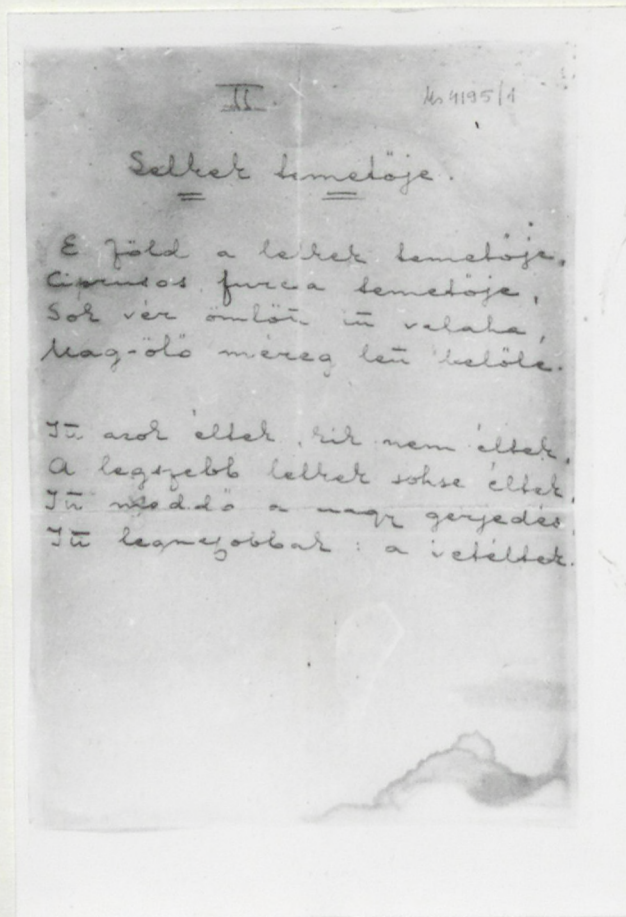 II
Ms 4195/1
Lelkek temetője.
E föld a lelkek temetője,
Ciprusos, furcsa temetője,
Sok vér ömlött itt valaha,
Mag-ölő méreg lett belőle.
Itt azok éltek, kik nem éltek,
A legszebb lelkek sohse éltek,
Itt meddő a nagy gerjedés
Itt legnagyobbak: a vetéltek.